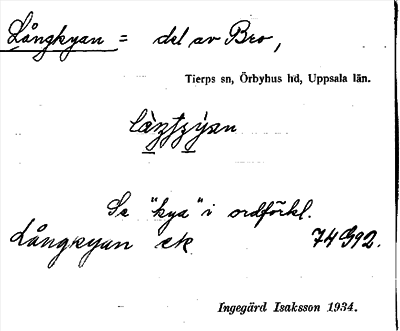 Långkyan = del av Bro,
Tierps sn, Örbyhus hd, Uppsala län.
Se "kya" i ordförkl.
Långkyan ek 74992.
Ingegärd Isaksson 1934.